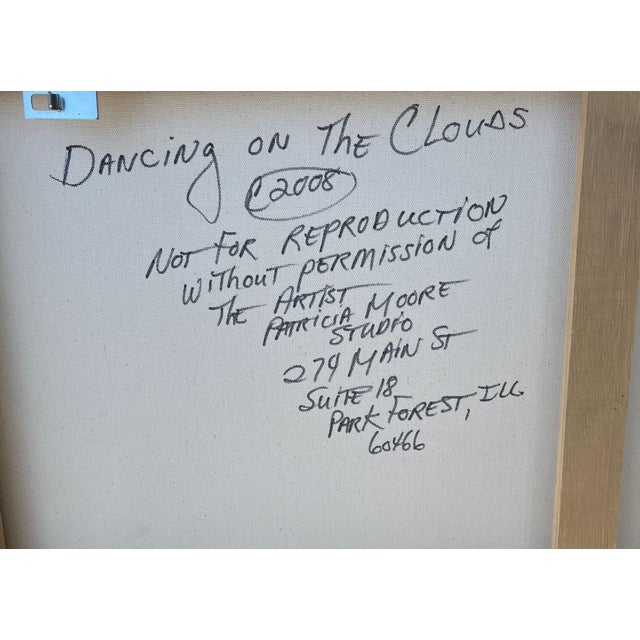 DANCING ON THE CLOUDS
© 2008
NOT FOR REPRODUCTION
WITHOUT PERMISSION of
THE ARTIST
PATRICIA MOORE
STUDIO
279 MAIN ST
SUITE 18
PARK FOREST, ILL
60466